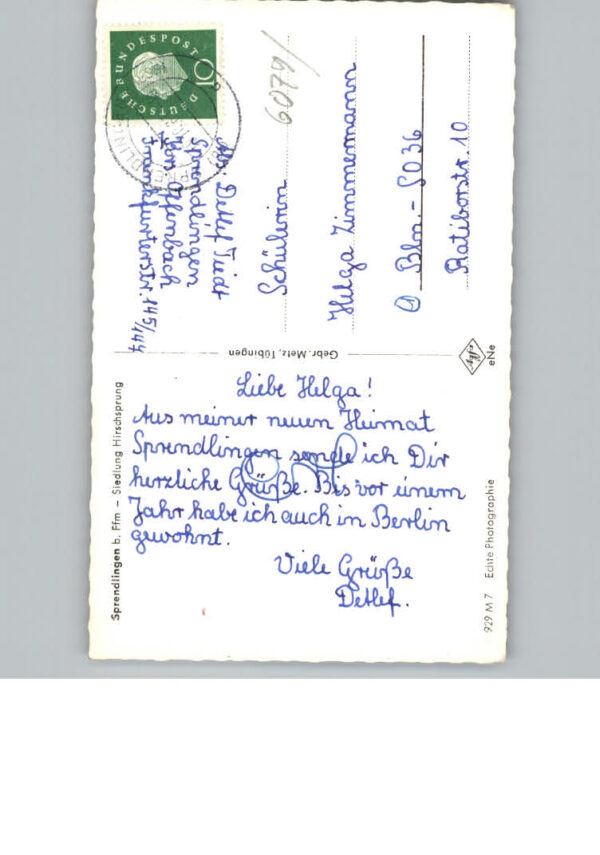 Liebe Helga!
Aus meiner neuen Heimat
Sprendlingen sende ich Dir
herzliche Grüße. Bis vor einem
Jahr habe ich auch in Berlin
gewohnt.
Viele Grüße
Detlef.
Sprendlingen b. Ffm – Siedlung Hirschsprung
929 M 7 Echte Photographie
Gebr. Metz, Tübingen
eNe
DEUTSCHE BUNDESPOST
10
Abs. Detlef Tiedt
Sprendlingen
Krs. Offenbach
Frankfurterstr. 145/147
6079/
Schülerin
Helga Zimmermann
1 Bln.-SO 36
Ratiborstr. 10